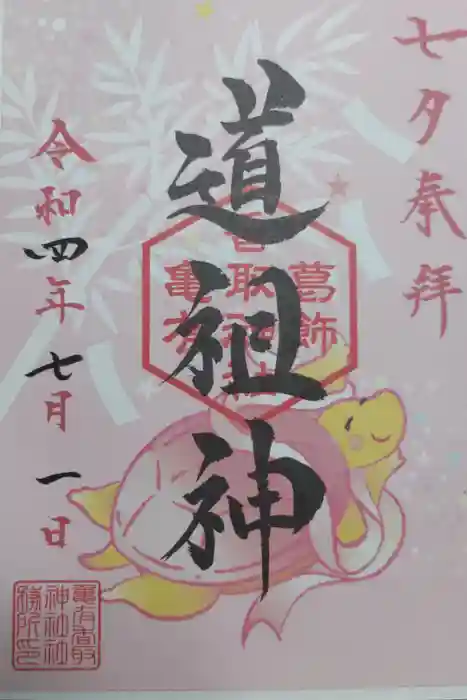 七夕奉拝
道祖神
葛飾
香取神社
亀有
令和四年七月一日
龜有香取
神社社
務所印